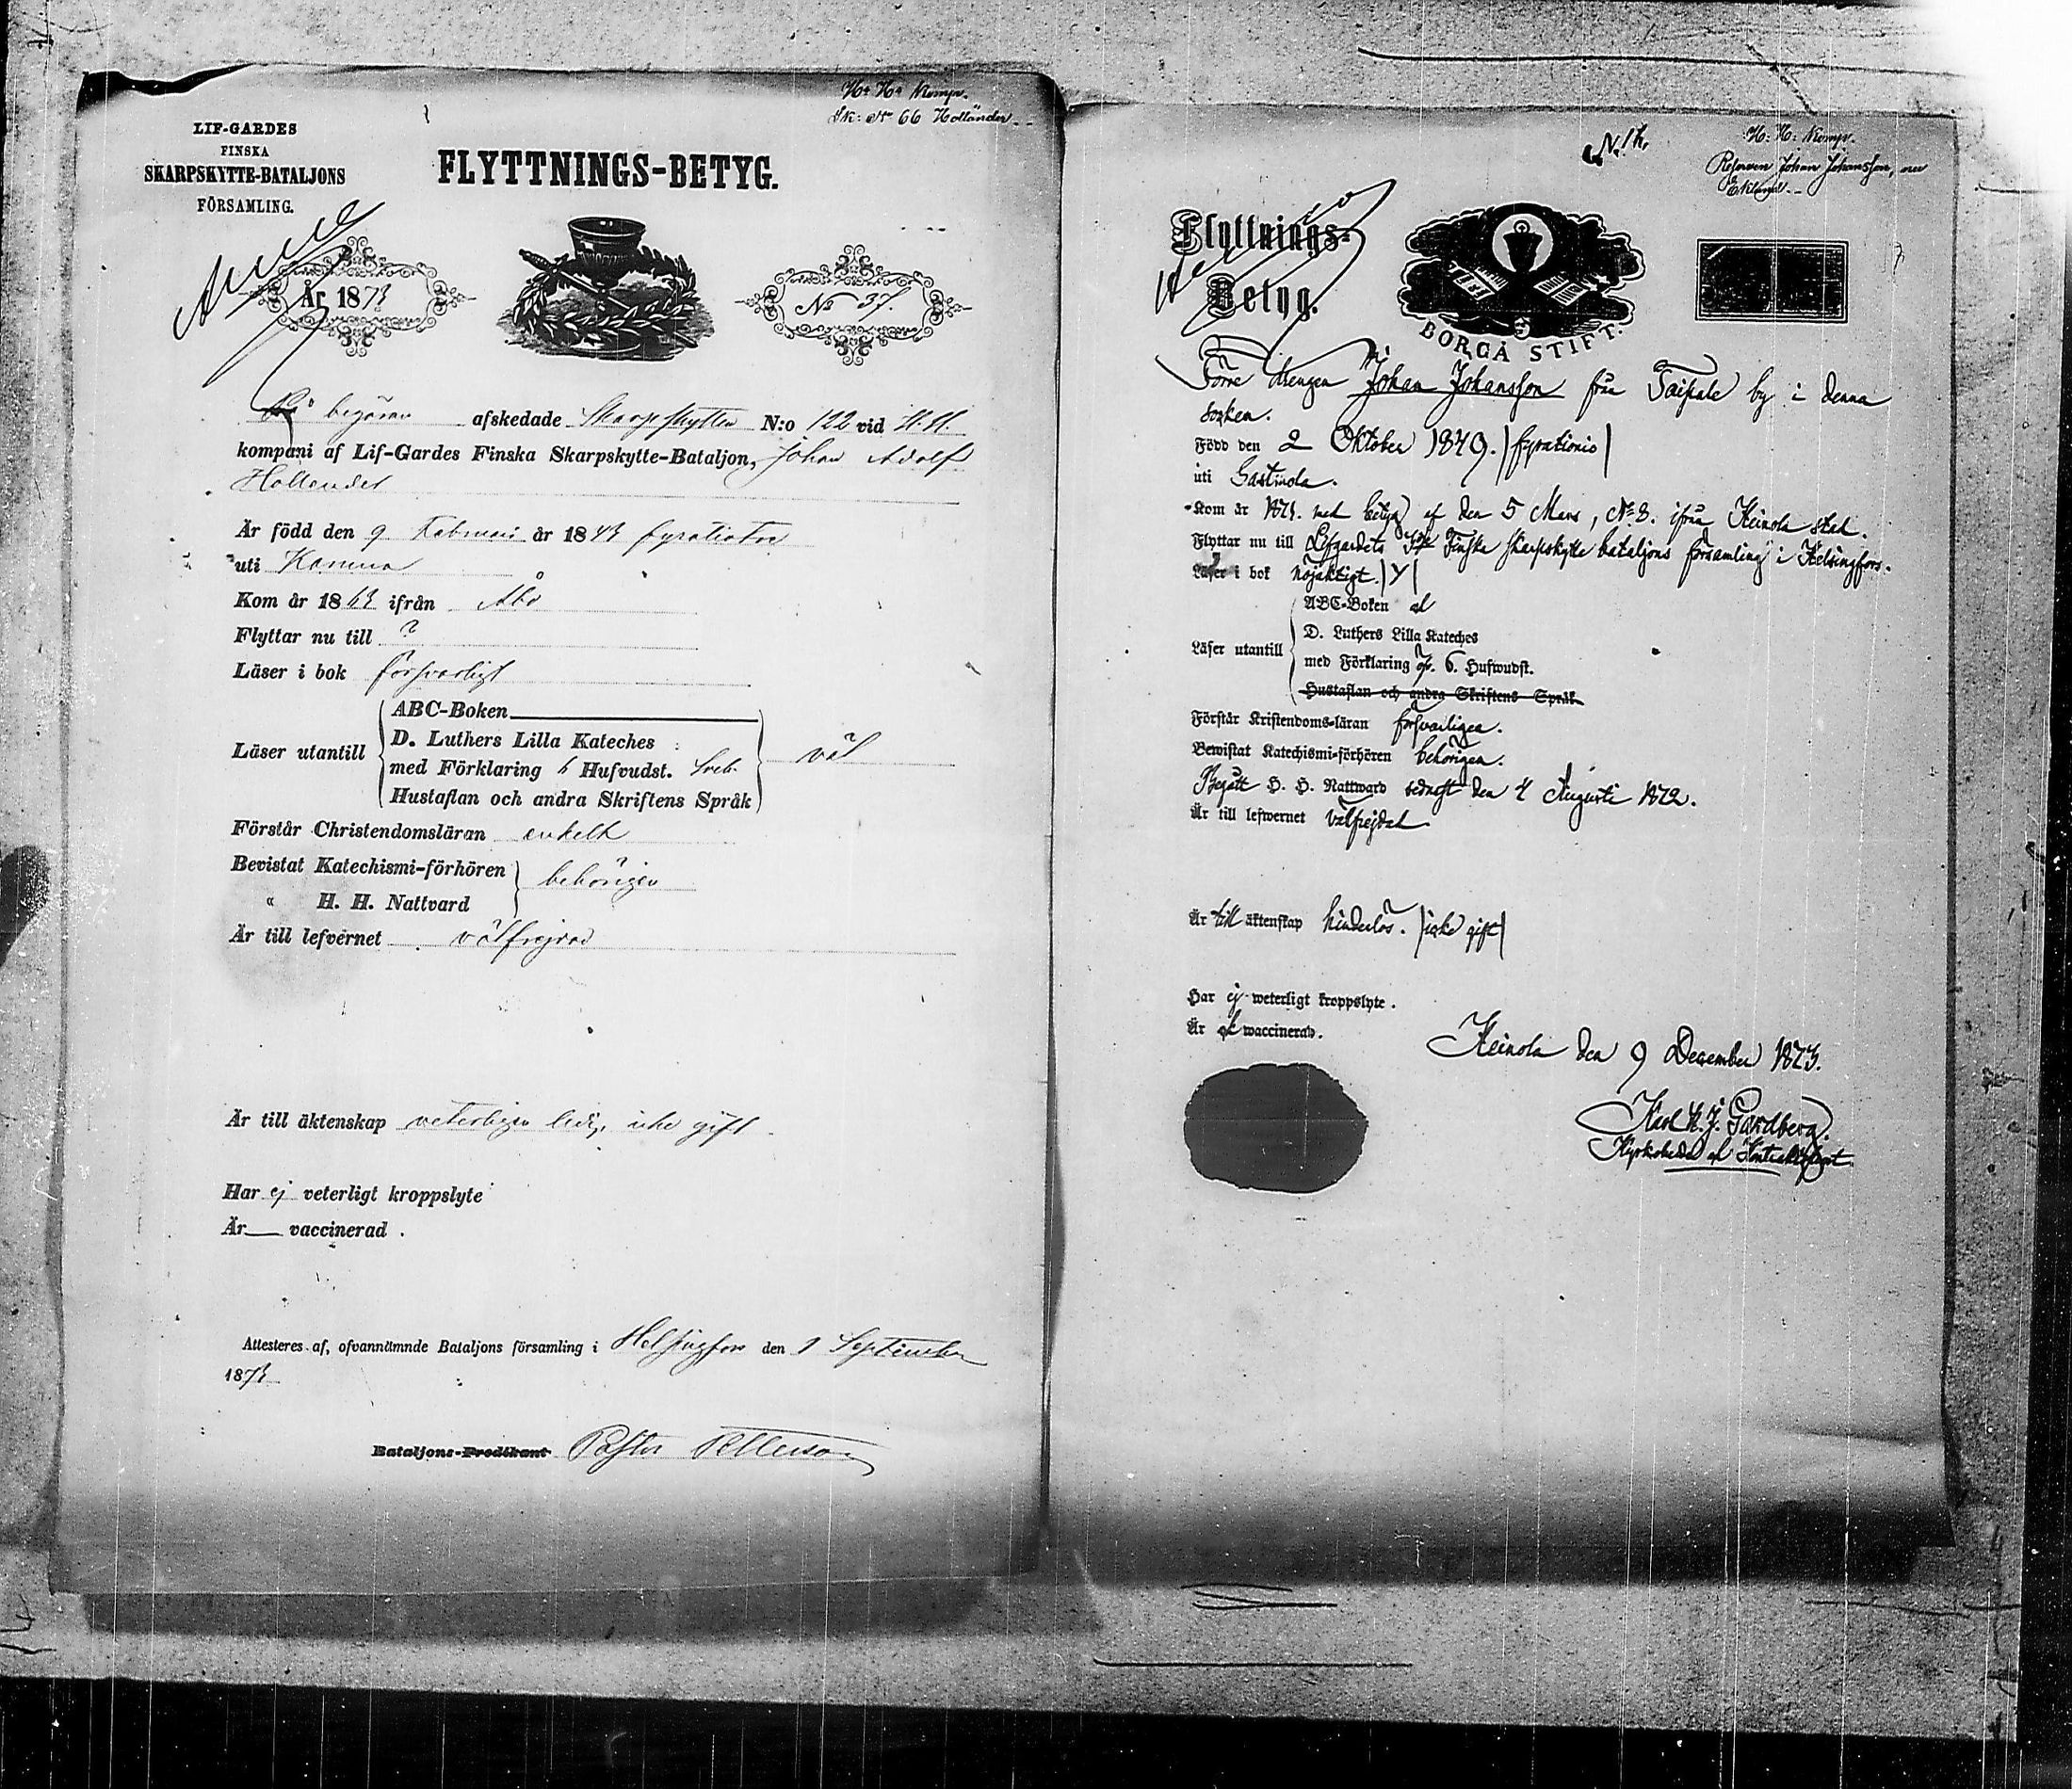 H: H: Komp.
Sk: No 66 Holländer.
LIF-GARDES
FINSKA
SKARPSKYTTE-BATALJONS
FÖRSAMLING.
FLYTTNINGS-BETYG.
År 1873
No 37.
På begäran afskedade Skarpskytten N:o 122 vid H.H.
kompani af Lif-Gardes Finska Skarpskytte-Bataljon, Johan Adolf
Hollender
Är född den 9 Februari år 1843 fyratiotre
uti
Kom år 1863 ifrån Åbo
Flyttar nu till ?
Läser i bok försvarligt
Läser utantill
ABC-Boken
D. Luthers Lilla Kateches
med Förklaring 6 Hufvudst. Sveb.
Hustaflan och andra Skriftens Språk
väl
Förstår Christendomsläran enkelt
Bevistat Katechismi-förhören
" H. H. Nattvard
behörigen
Är till lefvernet välfrejdad
Är till äktenskap veterligen ledig, icke gift
Har ej veterligt kroppslyte
Är vaccinerad.
Attesteras af, ofvannämnde Bataljons församling i Helsingfors den 1 September
1873
Bataljons-Predikant Pastor Pettersson
N. 1
H: H: Komp.
Reserven Johan Johansson, nu
Eklund
Flyttnings-
Betyg.
BORGÅ STIFT.
Förre drengen Johan Johansson från Taipale by i denna
socken.
Född den 2 Oktober 1849. /fyrationio/
uti Gastinola.
Kom år 1871. med betyg af den 5 Mars, No 8. ifrån Heinola stad.
Flyttar nu till Lifgardets Finska skarpskytte bataljons församling i Helsingfors.
Läser i bok nöjaktigt.
Läser utantill
ABC-Boken
D. Luthers Lilla Kateches
med Förklaring öfv. 6. Hufwudst.
Hustaflan och andra Skriftens Språk
Förstår Kristendoms-läran försvarligen.
Bewistat Katechismi-förhören behörigen.
Begått H. H. Nattward sednast den 4 Augusti 1872.
Är till lefwernet välfrejdad
Är till äktenskap hinderlös. /icke gift/
Har ej weterligt kroppslyte.
Är waccinerad.
Heinola den 9 December 1873.
Karl K. J. Gardberg.
Kyrkoherde